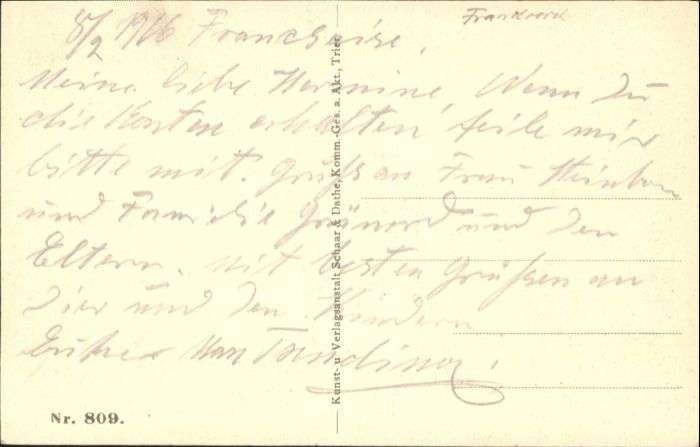 Frankreich
8/2 1916
Meine liebe Hermine, Wenn Du
die Karten erhalten, teile mir
bitte mit. Gruß an Frau
und Familie und den
Eltern. Mit besten Grüßen an
Dir und den Kindern
Kunst- u Verlagsanstalt Schaar & Dathe, Komm.-Ges. a. Akt., Trier
Nr. 809.